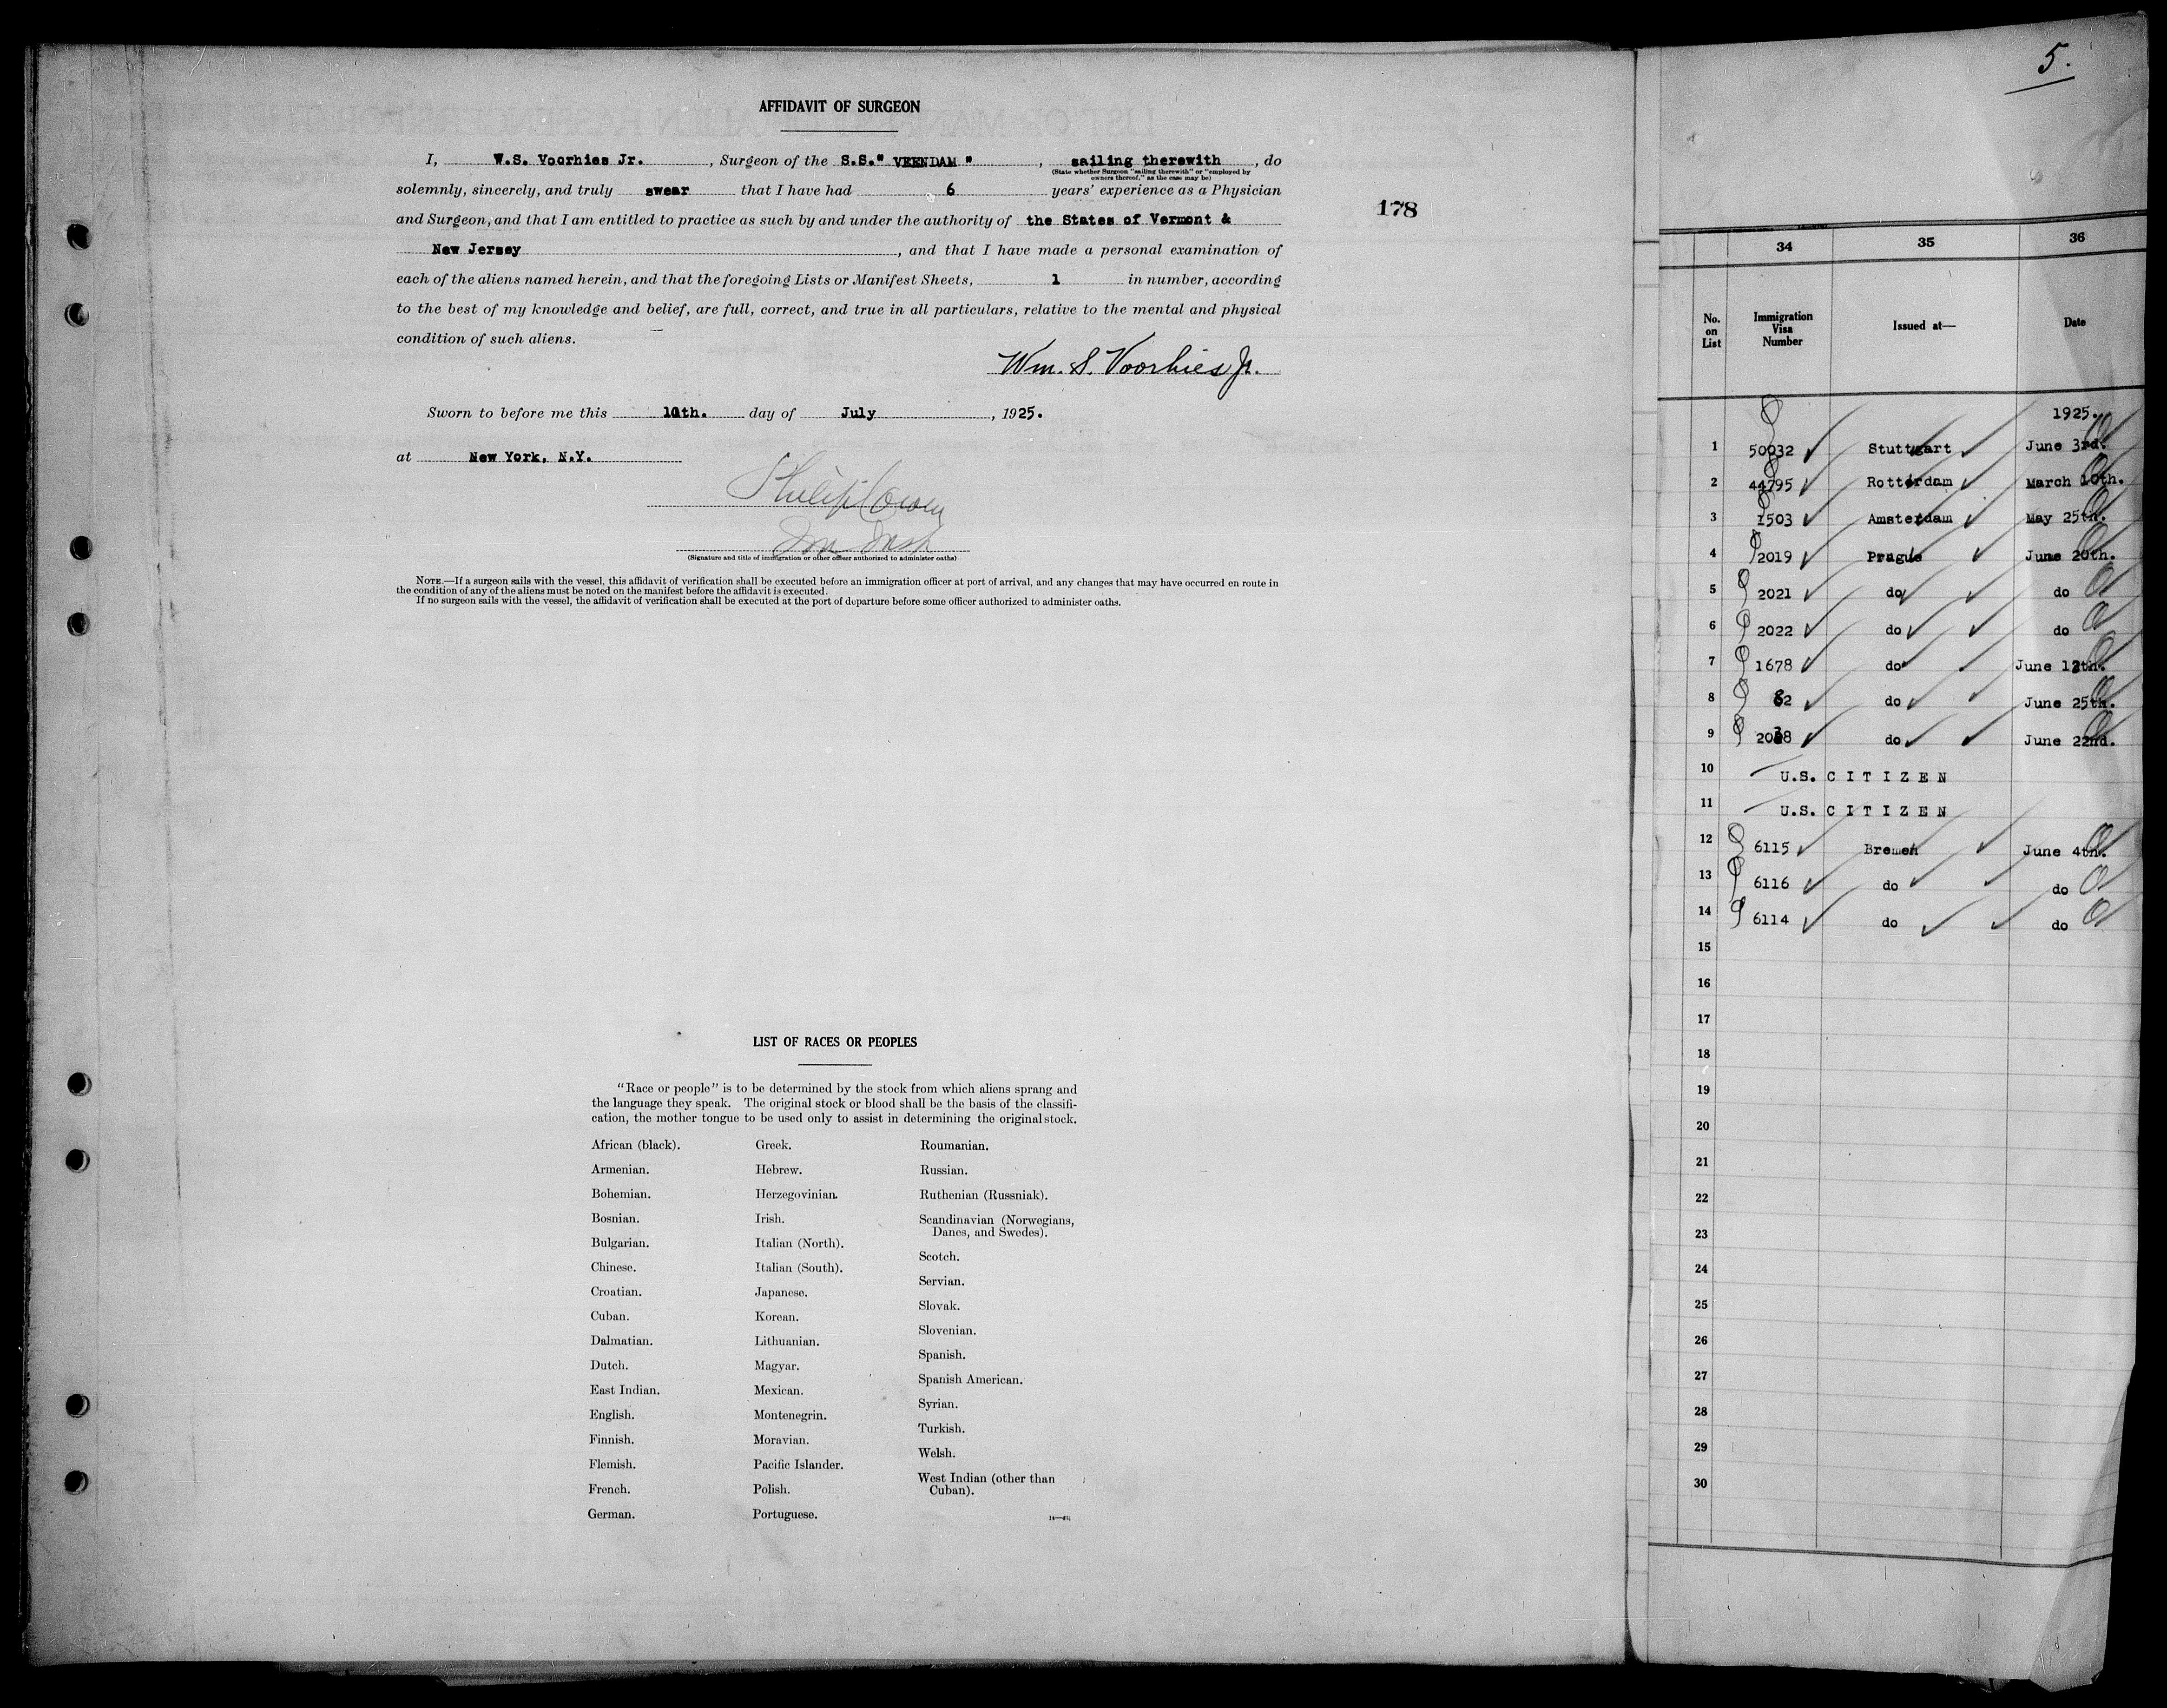 AFFIDAVIT OF SURGEON
I, W.S. Voorhies Jr. , Surgeon of the S.S." VEENDAM " , sailing therewith , do
(State whether Surgeon "sailing therewith" or "employed by
owners thereof," as the case may be)
solemnly, sincerely, and truly swear that I have had 6 years' experience as a Physician
and Surgeon, and that I am entitled to practice as such by and under the authority of the States of Vermont &
New Jersey , and that I have made a personal examination of
each of the aliens named herein, and that the foregoing Lists or Manifest Sheets, 1 in number, according
to the best of my knowledge and belief, are full, correct, and true in all particulars, relative to the mental and physical
condition of such aliens.
Wm. S. Voorhies Jr.
Sworn to before me this day of July , 1925.
at New York, N.Y.
Philip Cowen
(Signature and title of immigration or other officer authorized to administer oaths)
NOTE.—If a surgeon sails with the vessel, this affidavit of verification shall be executed before an immigration officer at port of arrival, and any changes that may have occurred en route in
the condition of any of the aliens must be noted on the manifest before the affidavit is executed.
If no surgeon sails with the vessel, the affidavit of verification shall be executed at the port of departure before some officer authorized to administer oaths.
178
LIST OF RACES OR PEOPLES
"Race or people" is to be determined by the stock from which aliens sprang and
the language they speak. The original stock or blood shall be the basis of the classifi-
cation, the mother tongue to be used only to assist in determining the original stock.
African (black).
Armenian.
Bohemian.
Bosnian.
Bulgarian.
Chinese.
Croatian.
Cuban.
Dalmatian.
Dutch.
East Indian.
English.
Finnish.
Flemish.
French.
German.
Greek.
Hebrew.
Herzegovinian.
Irish.
Italian (North).
Italian (South).
Japanese.
Korean.
Lithuanian.
Magyar.
Mexican.
Montenegrin.
Moravian.
Pacific Islander.
Polish.
Portuguese.
Roumanian.
Russian.
Ruthenian (Russniak).
Scandinavian (Norwegians,
Danes, and Swedes).
Scotch.
Servian.
Slovak.
Slovenian.
Spanish.
Spanish American.
Syrian.
Turkish.
Welsh.
West Indian (other than
Cuban).
5.
34 35 36
No. on List Immigration Visa Number Issued at— Date
1925.
1 50032 Stuttgart June 3rd.
2 44795 Rotterdam March 10th.
3 1503 Amsterdam May 25th.
4 2019 Prague June 20th.
5 2021 do do
6 2022 do do
7 1678 do June
8 82 do June 25th.
9 2038 do June 22nd.
10 U.S. CITIZEN
11 U.S. CITIZEN
12 6115 Bremen June 4th.
13 6116 do do
14 6114 do do
15
16
17
18
19
20
21
22
23
24
25
26
27
28
29
30